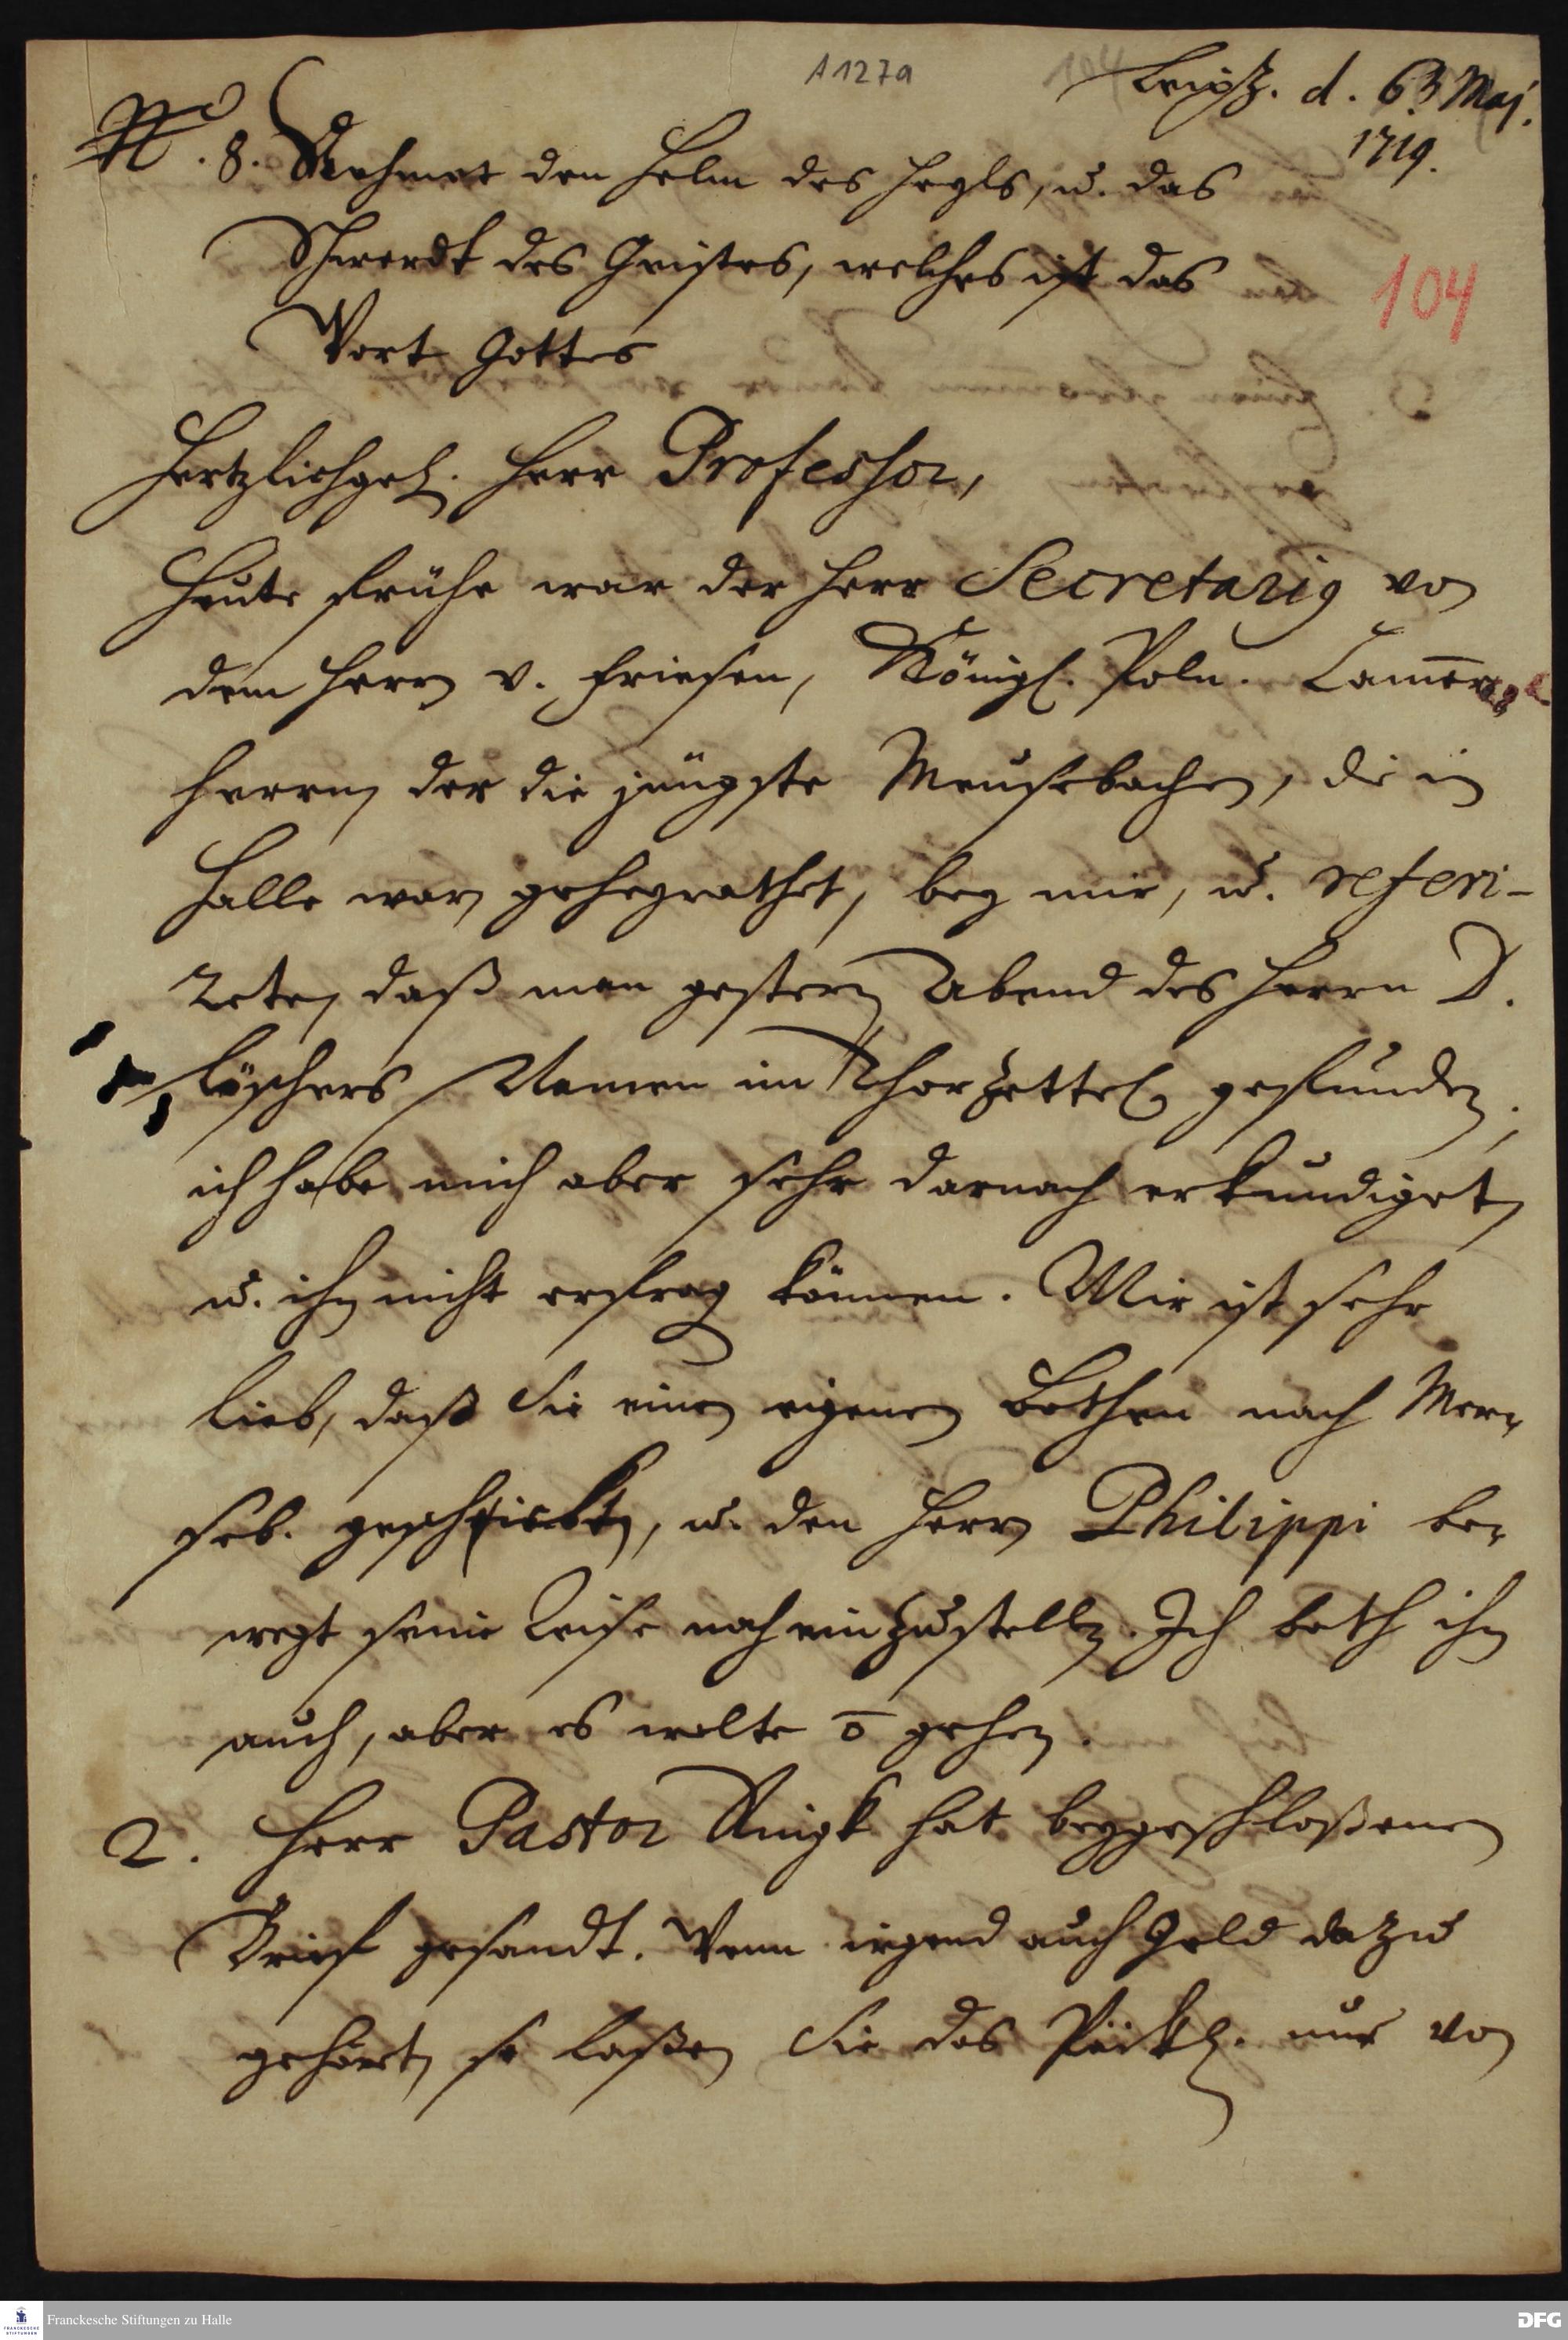 A127a
Leipz. d. 6. Maj.
1719.
N. 8. Nehmet den Helm des Heyls, u. das
Schwerdt des Geistes, welches ist das
104
Wort Gottes
Hertzlichgel. Herr Professor,
Heute frühe war der Herr Secretarius von
dem Herrn v. Friesen, Königl. Poln. Cammer
herrn, der die jüngste Meusebachen, die in
Halle war, geheyrathet, bey mir, u. referi-
rete, daß man gestern Abend des Herrn D.
Löschers Namen im Thorzettel gefunden,
ich habe mich aber sehr darnach erkundiget,
u. ihn nicht erfragen können. Mir ist sehr
lieb, daß Sie einen eigenen Bothen nach Mer-
seb. geschickt, u. den Herrn Philippi be-
wegt seine Reise noch einzustellen. Ich bath ihn
auch, aber es wolte nicht gehen.
2. Herr Pastor Ringk hat beygeschloßenen
Brief gesandt. Wenn irgend auch Geld dazu
gehört, so laßen Sie das Päckl. nur von
Franckesche Stiftungen zu Halle
FRANCKESCHE STIFTUNGEN
DFG